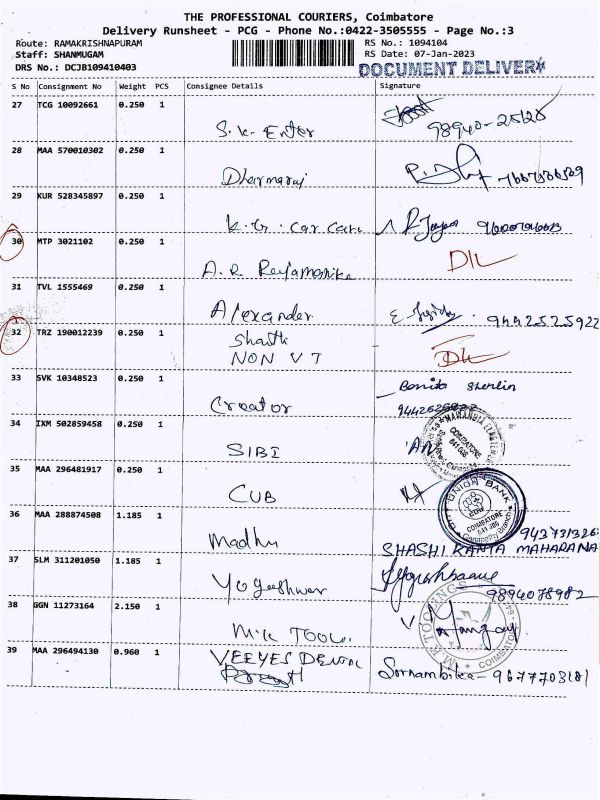 THE PROFESSIONAL COURIERS, Coimbatore
Delivery Runsheet - PCG - Phone No.:0422-3505555 - Page No.:3
Route: RAMAKRISHNAPURAM RS No.: 1094104
Staff: SHANMUGAM RS Date: 07-Jan-2023
DRS No.: DCJB109410403 DOCUMENT DELIVERY
S No Consignment No Weight PCS Consignee Details Signature
27 TCG 10092661 0.250 1
S.K. Enter 98940-25120
28 MAA 570010302 0.250 1
Dharmaraj
29 KUR 528345897 0.250 1
K.G. Car Care
30 MTP 3021102 0.250 1
A.R. D/L
31 TVL 1555469 0.250 1
Alexander 9442525922
32 TRZ 190012239 0.250 1
Shakthi
NON VT D/L
33 SVK 10348523 0.250 1
Creator Sherlin
34 IXM 502859458 0.250 1
SIBI
COIMBATORE
35 MAA 296481917 0.250 1
CUB
CITY UNION BANK
COIMBATORE
36 MAA 288874508 1.185 1
Madhu SHASHI KANTA MAHARANA
37 SLM 311201050 1.185 1
Yogeshwar 9894078982
38 GGN 11273164 2.150 1
M.K TOOL
M.K TOOLINGS
COIMBATORE
39 MAA 296494130 0.960 1
VEEYES DENTAL Sornambika - 9677703181